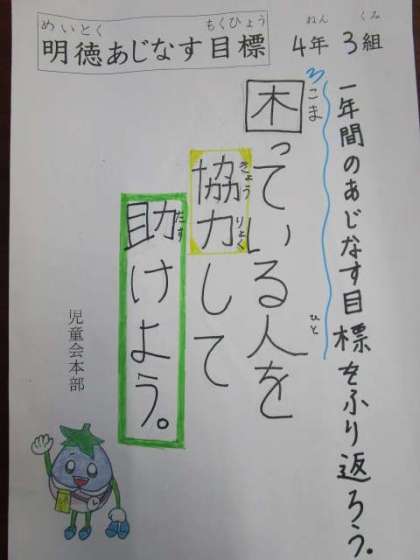 めいとく もくひょう
明徳あじなす目標
ねん くみ
4年 3組
一年間のあじなす目標をふり返ろう。
こま ひと
困っている人を
きょう りょく
協力して
たす
助けよう。
児童会本部